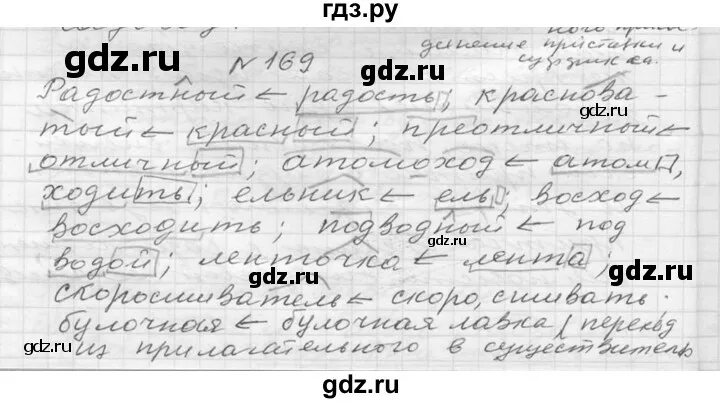 гдз.ру
ного прила
динение приставки и
суффикса.
N 169
Радостный ← радость; краснова-
тый ← красный; преотличный ←
отличный; атомоход ← атом,
ходить; ельник ← ель; восход ←
восходить; подводный ← под
водой; ленточка ← лента;
скоросшиватель ← скоро, сшивать.
булочная ← булочная лавка / переход
из прилагательного в существитель
gdz.ru gdz.ru
gdz.ru gdz.ru
gdz.ru gdz.ru
gdz.ru gdz.ru
gdz.ru